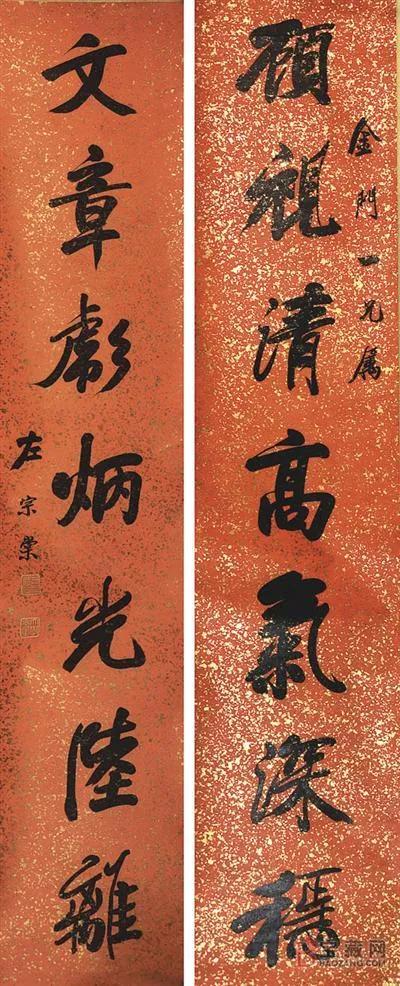 金門一兄屬
顧視清高氣深穩
文章彪炳光陸離
左宗棠
藏网